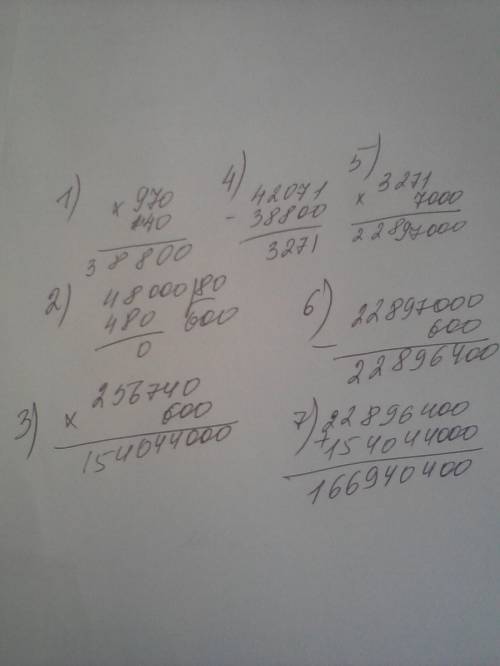 1) × 970
40
38800
2) 48000 | 80
480 600
0
3) × 256740
600
154044000
4) 42071
- 38800
3271
5) × 3271
7000
22897000
6) 22897000
- 600
22896400
7) 22896400
+ 154044000
166940400